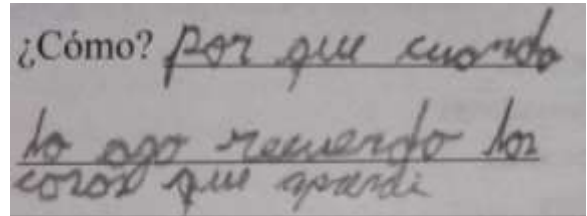 ¿Cómo? por que cuando
lo ago recuerdo los
cosas que aprendi